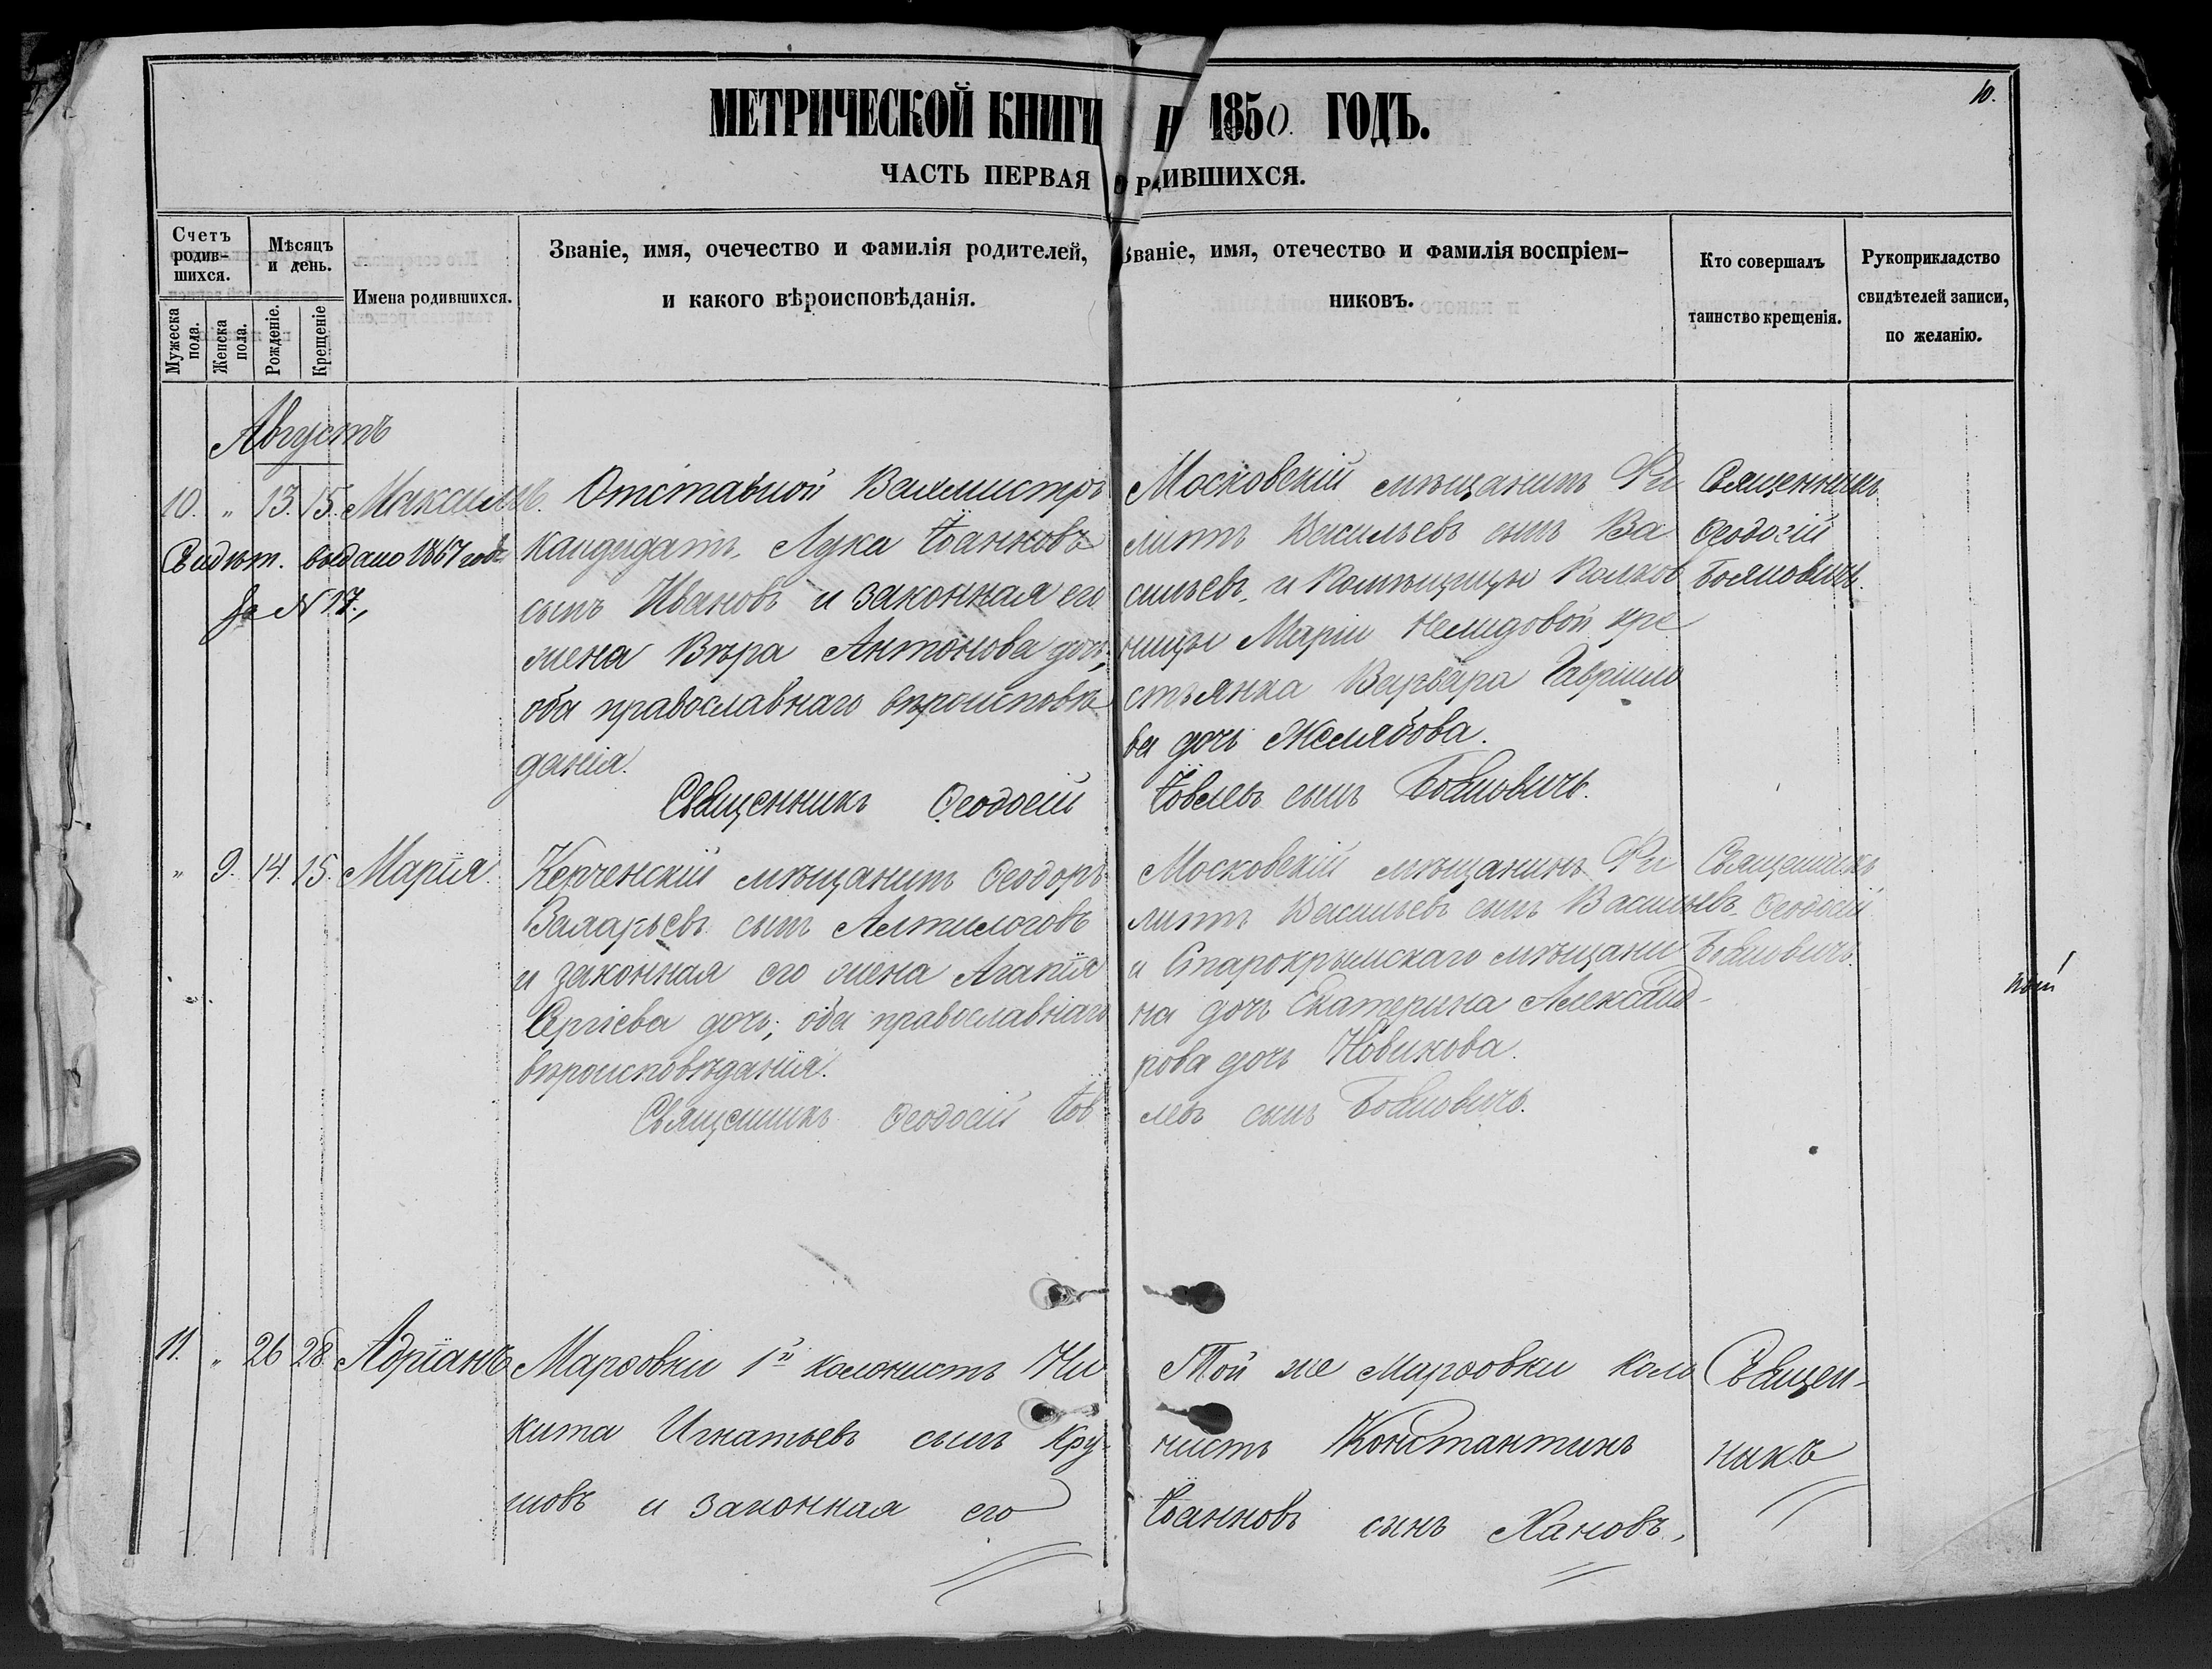 10.
МЕТРИЧЕСКОЙ КНИГИ Н 1850. ГОДЪ.
ЧАСТЬ ПЕРВАЯ О Р ИВШИХСЯ.
Счетъ родив-шихся.
Мужеска пола.
Женска пола.
Мѣсяцъ и день.
Рожденіе.
Крещеніе
Имена родившихся.
Званіе, имя, очечество и фамилія родителей,
и какого вѣроисповѣданія.
Званіе, имя, отечество и фамилія воспріем-
никовъ.
Кто совершалъ
таинство крещенія.
Рукоприкладство
свидѣтелей записи,
по желанію.
Августъ
10. " 13. 15. Максимъ.
Свидѣт. выдано 1867 года
за № 17.,
Отставной Вахмистръ
кандидатъ, Лука Іоанновъ
сынъ Ивановъ и законная его
жена Вѣра Антонова дочь;
оба православнаго вѣроисповѣ
данія.
Московскій мѣщанинъ Фи
липъ Васильевъ сынъ Ва
сильевъ, и Помѣщицы Полков
ницы Маріи Нелидовой кре
стьянка Варвара Гаврило
ва дочь Желябова.
Священникъ
Ѳеодосій
Бояновичъ.
Священникъ Ѳеодосій Іовлевъ сынъ Бояновичъ.
" 9. 14. 15. Марія.
Керченскій мѣщанинъ Ѳеодоръ
Захарьевъ сынъ Алтилоговъ
и законная его жена Агапія
Сергіева дочь; оба православнаго
вѣроисповѣданія.
Московскій мѣщанинъ Фи
липъ Васильевъ сынъ Васильевъ
и Старокрымскаго мѣщани
на дочь Екатерина Александ-
рова дочь Новикова.
Священникъ
Ѳеодосій
Бояновичъ.
Священникъ Ѳеодосій Іовлевъ сынъ Бояновичъ.
11. " 26 28. Адріанъ
Марфовки 1й колонистъ Ни
кита Игнатьевъ сынъ Кру-
шовъ и законная его
Той же Марфовки коло
нистъ Константинъ
Іоанновъ сынъ Хановъ,
Священ-
никъ